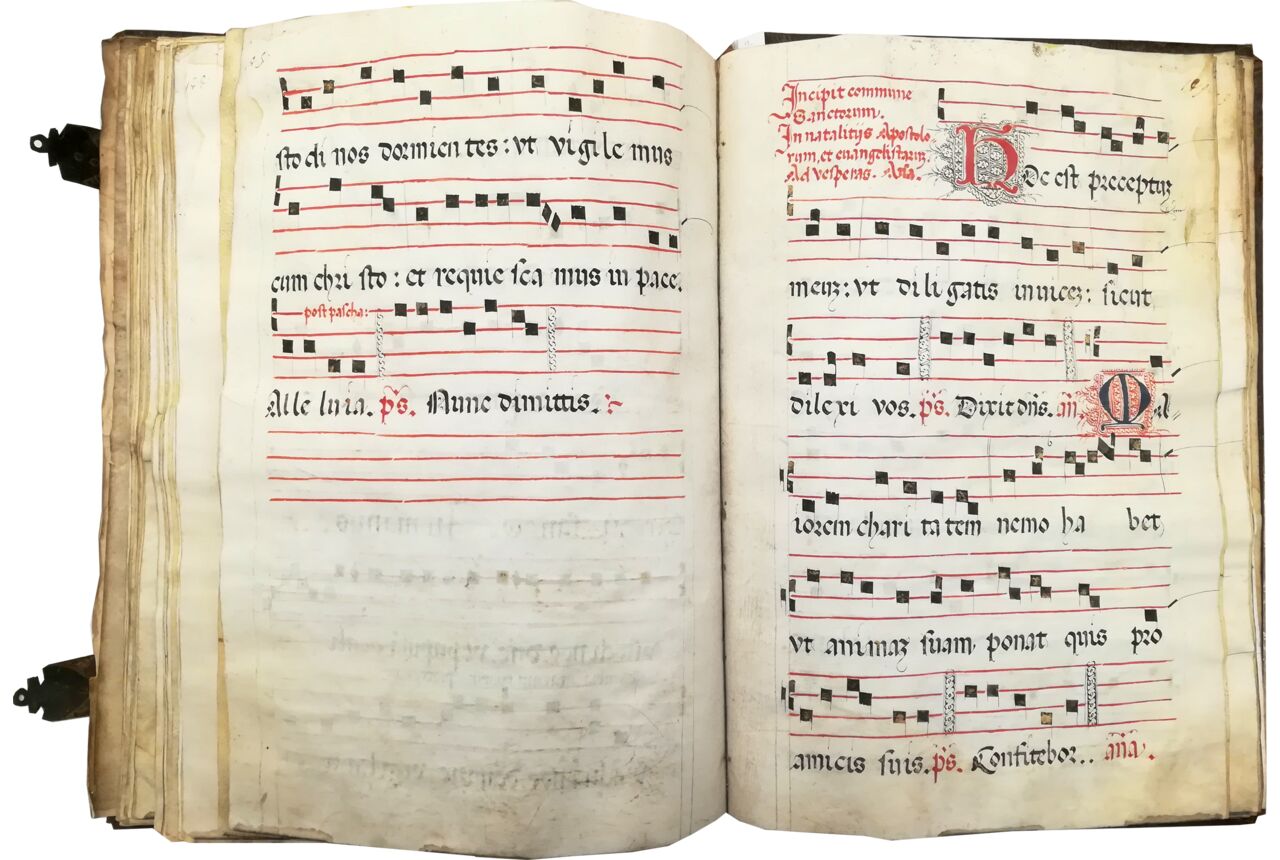 sto di nos dormien tes : vt vigile mus
cum chri sto : et requie sca mus in pace.
post pascha:
Alle luia. ps. Nunc dimittis.
Incipit commune
Sanctorum.
In natalitijs Apostolo
rum, et euangelistarum.
Ad vesperas. Aña.
Hoc est preceptuz
meuz : vt dili gatis inuicez : sicut
dilexi vos. ps. Dixit dñs. añ. Ma
iorem chari ta tem nemo ha bet
vt animaz suam ponat quis pro
amicis suis. ps. Confitebor.. aña.